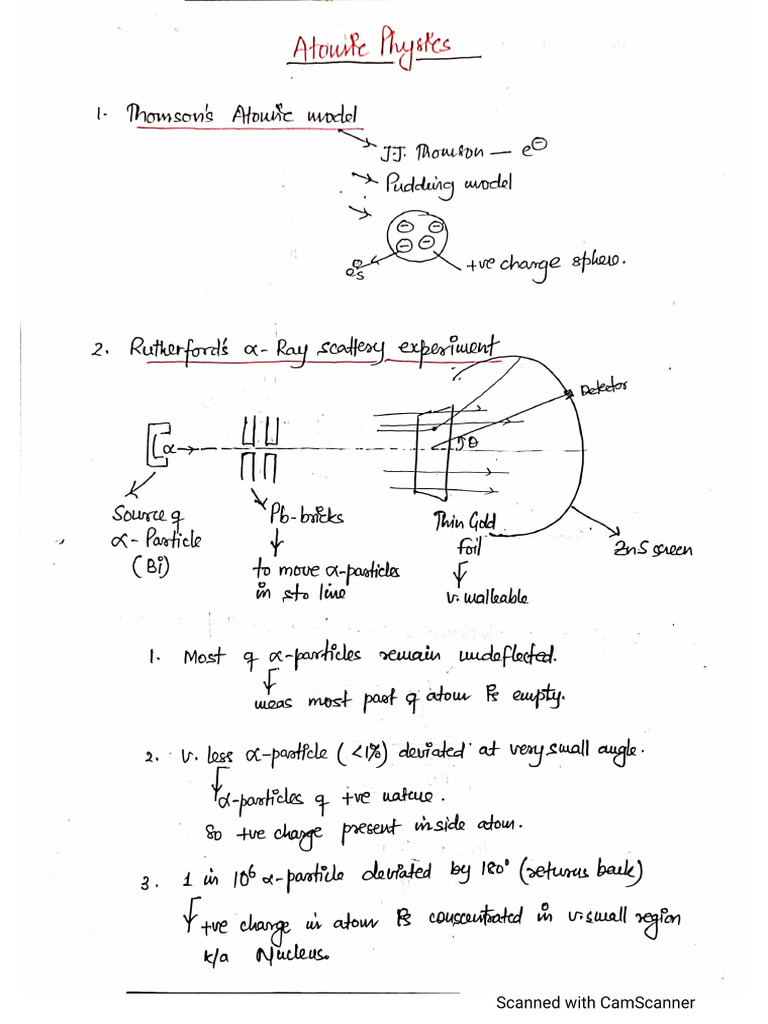 Atomic Physics
1. Thomson's Atomic model
J.J. Thomson — e⊖
Pudding model
⊖ ⊖
⊖ ⊖
e⊖s
+ve charge sphere.
2. Rutherford's α-Ray scattery experiment
Detector
α
θ
Source of
α-Particle
(Bi)
Pb-bricks
to move α-particles
in st. line
Thin Gold
foil
v. malleable
ZnS screen
1. Most of α-particles remain undeflected.
meas most part of atom is empty.
2. v. less α-particle (<1%) deviated at very small angle.
α-particles of +ve nature.
So +ve charge present inside atom.
3. 1 in 10⁶ α-particle deviated by 180° (returns back)
+ve charge in atom is conscentrated in v. small region
k/a Nucleus.
Scanned with CamScanner